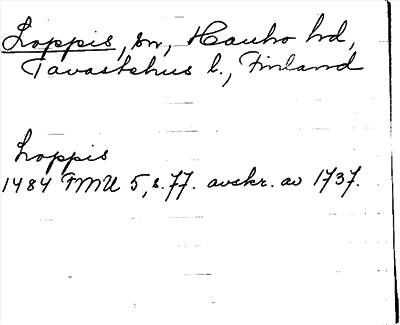 Loppis, sn, Hauho hd,
Tavastehus l., Finland
Loppis
1484 FMU 5, s. 77. avskr. av 1737.